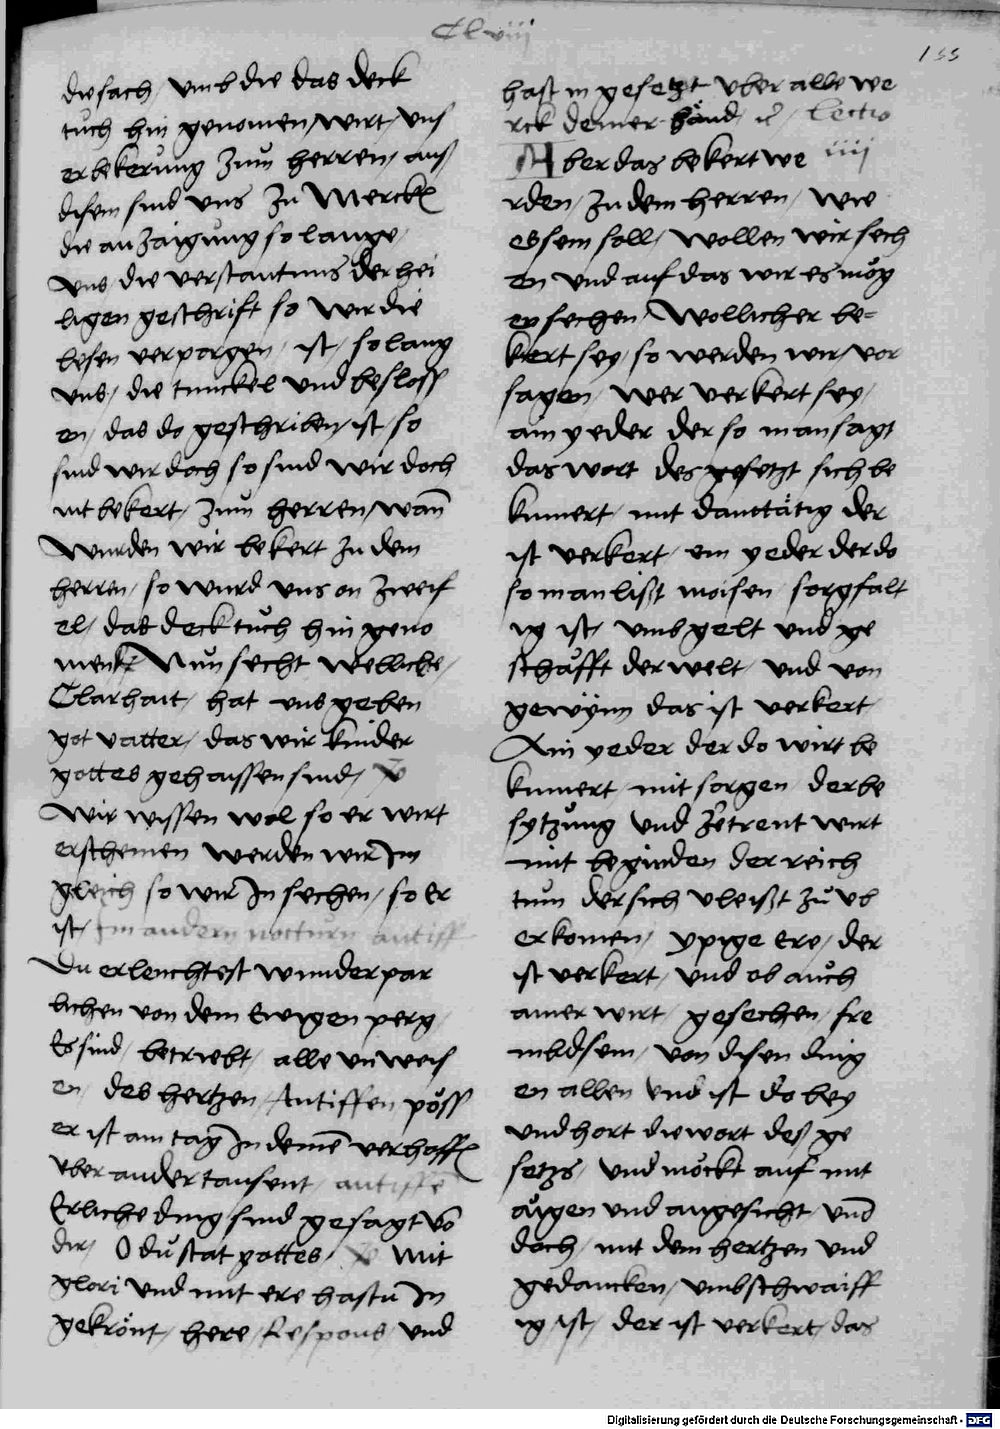 Clviii
155
die sach, umb die das deck
tuch hin genomen, wirt, uns
erbekerung zum herren, auß
disem sind uns zu Mercken
die anzaigung so lange,
uns die verstantnus der hei
ligen geschrift so wir die
lesen verporgen, ist, so lang
uns, die tunckel und besloss
en, das do geschriben, ist so
sind wir doch so sind wir doch
nit bekert, zum herren, wann
Wurden wir bekert zu dem
herren, so wurd uns on zweif
el, das deck tuch hin geno
men, Nun secht wellicke,
Clarhait, hat uns geben
got vatter, das wir kinder
gottes gehaissen sind,
Wir wissen wol so er wirt
erscheinen werden wir Im
gleich so wir In sechen, so Er
ist, Im andern nocturn antiff
Du erleuchtest wunderpar
lichen von dem Ewigen perg,
Es sind, betriebt, alle unweis
en, des hertzen, Antiffen pöss
er ist ain tag In deinen verhoffen
uber ander tausent, antiffe
Erliche ding sind gesagt von
dir, O du stat gottes, Mit
glori und mit ere hastu In
gekrönt, here, Respons, und
hast in gesetzt uber alle we
rck deiner händ, Lectio
iiij
Aber das bekert we
rden, zu dem herren, wie
es sein soll, wollen wir sech
en und auf das wir es mög
en sechen, Wollicher be=
kert sey, so werden wir, vor
sagen, wer verkert sey,
ain yeder der so man sagt
das wort des gesetzt sich be
kumert, mit dauttätig der
ist verkert, ein yeder der do
so man lißt moisen sorgfalt
ig ist, umb gelt und ge
schäfft der welt, und von
gewynn das ist verkert,
Ain yeder der do wirt be
kumert, mit sorgen der be
sytzung und zetrent wirt
mit beginden der reich
tum der sich vleißt zu ub
erkomen, ypige Ere, der
ist verkert, und ob auch
ainer wirt, gesechen, fre
mbdsein, von disen ding
en allen und ist do bey
und hort die wort deß ge
setzs, und möckt auf mit
augen und angesicht, und
doch, mit dem hertzen und
gedancken, umbschwaiff
ig ist, der ist verkert, das
Digitalisierung gefördert durch die Deutsche Forschungsgemeinschaft - DFG